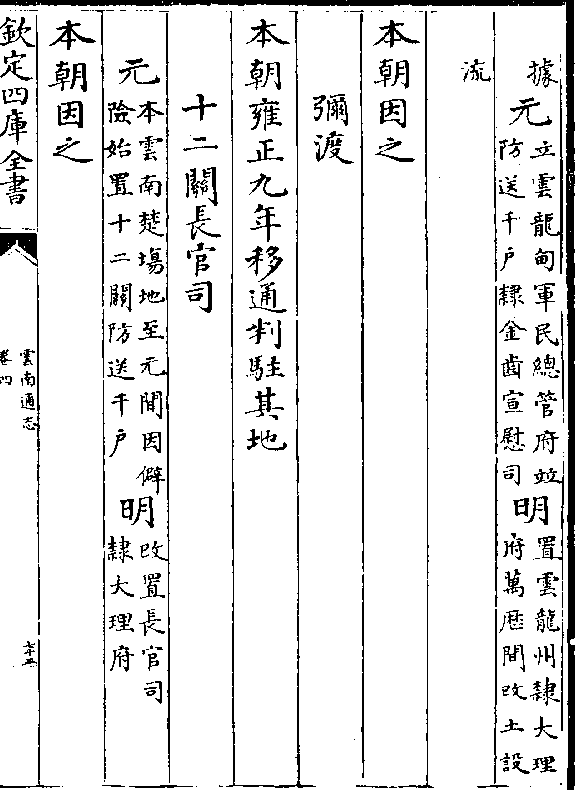 據
元立雲龍甸軍民總管府並防送千户隸金齒宣慰司明置雲龍州隸大理府萬厯間改土設
流
本朝因之
彌渡
本朝雍正九年移通判駐其地
十二關長官司
元本雲南楚場地至元間因僻險始置十二關防送千户明改置長官司隸大理府
本朝因之
欽定四庫全書
雲南通志
卷四